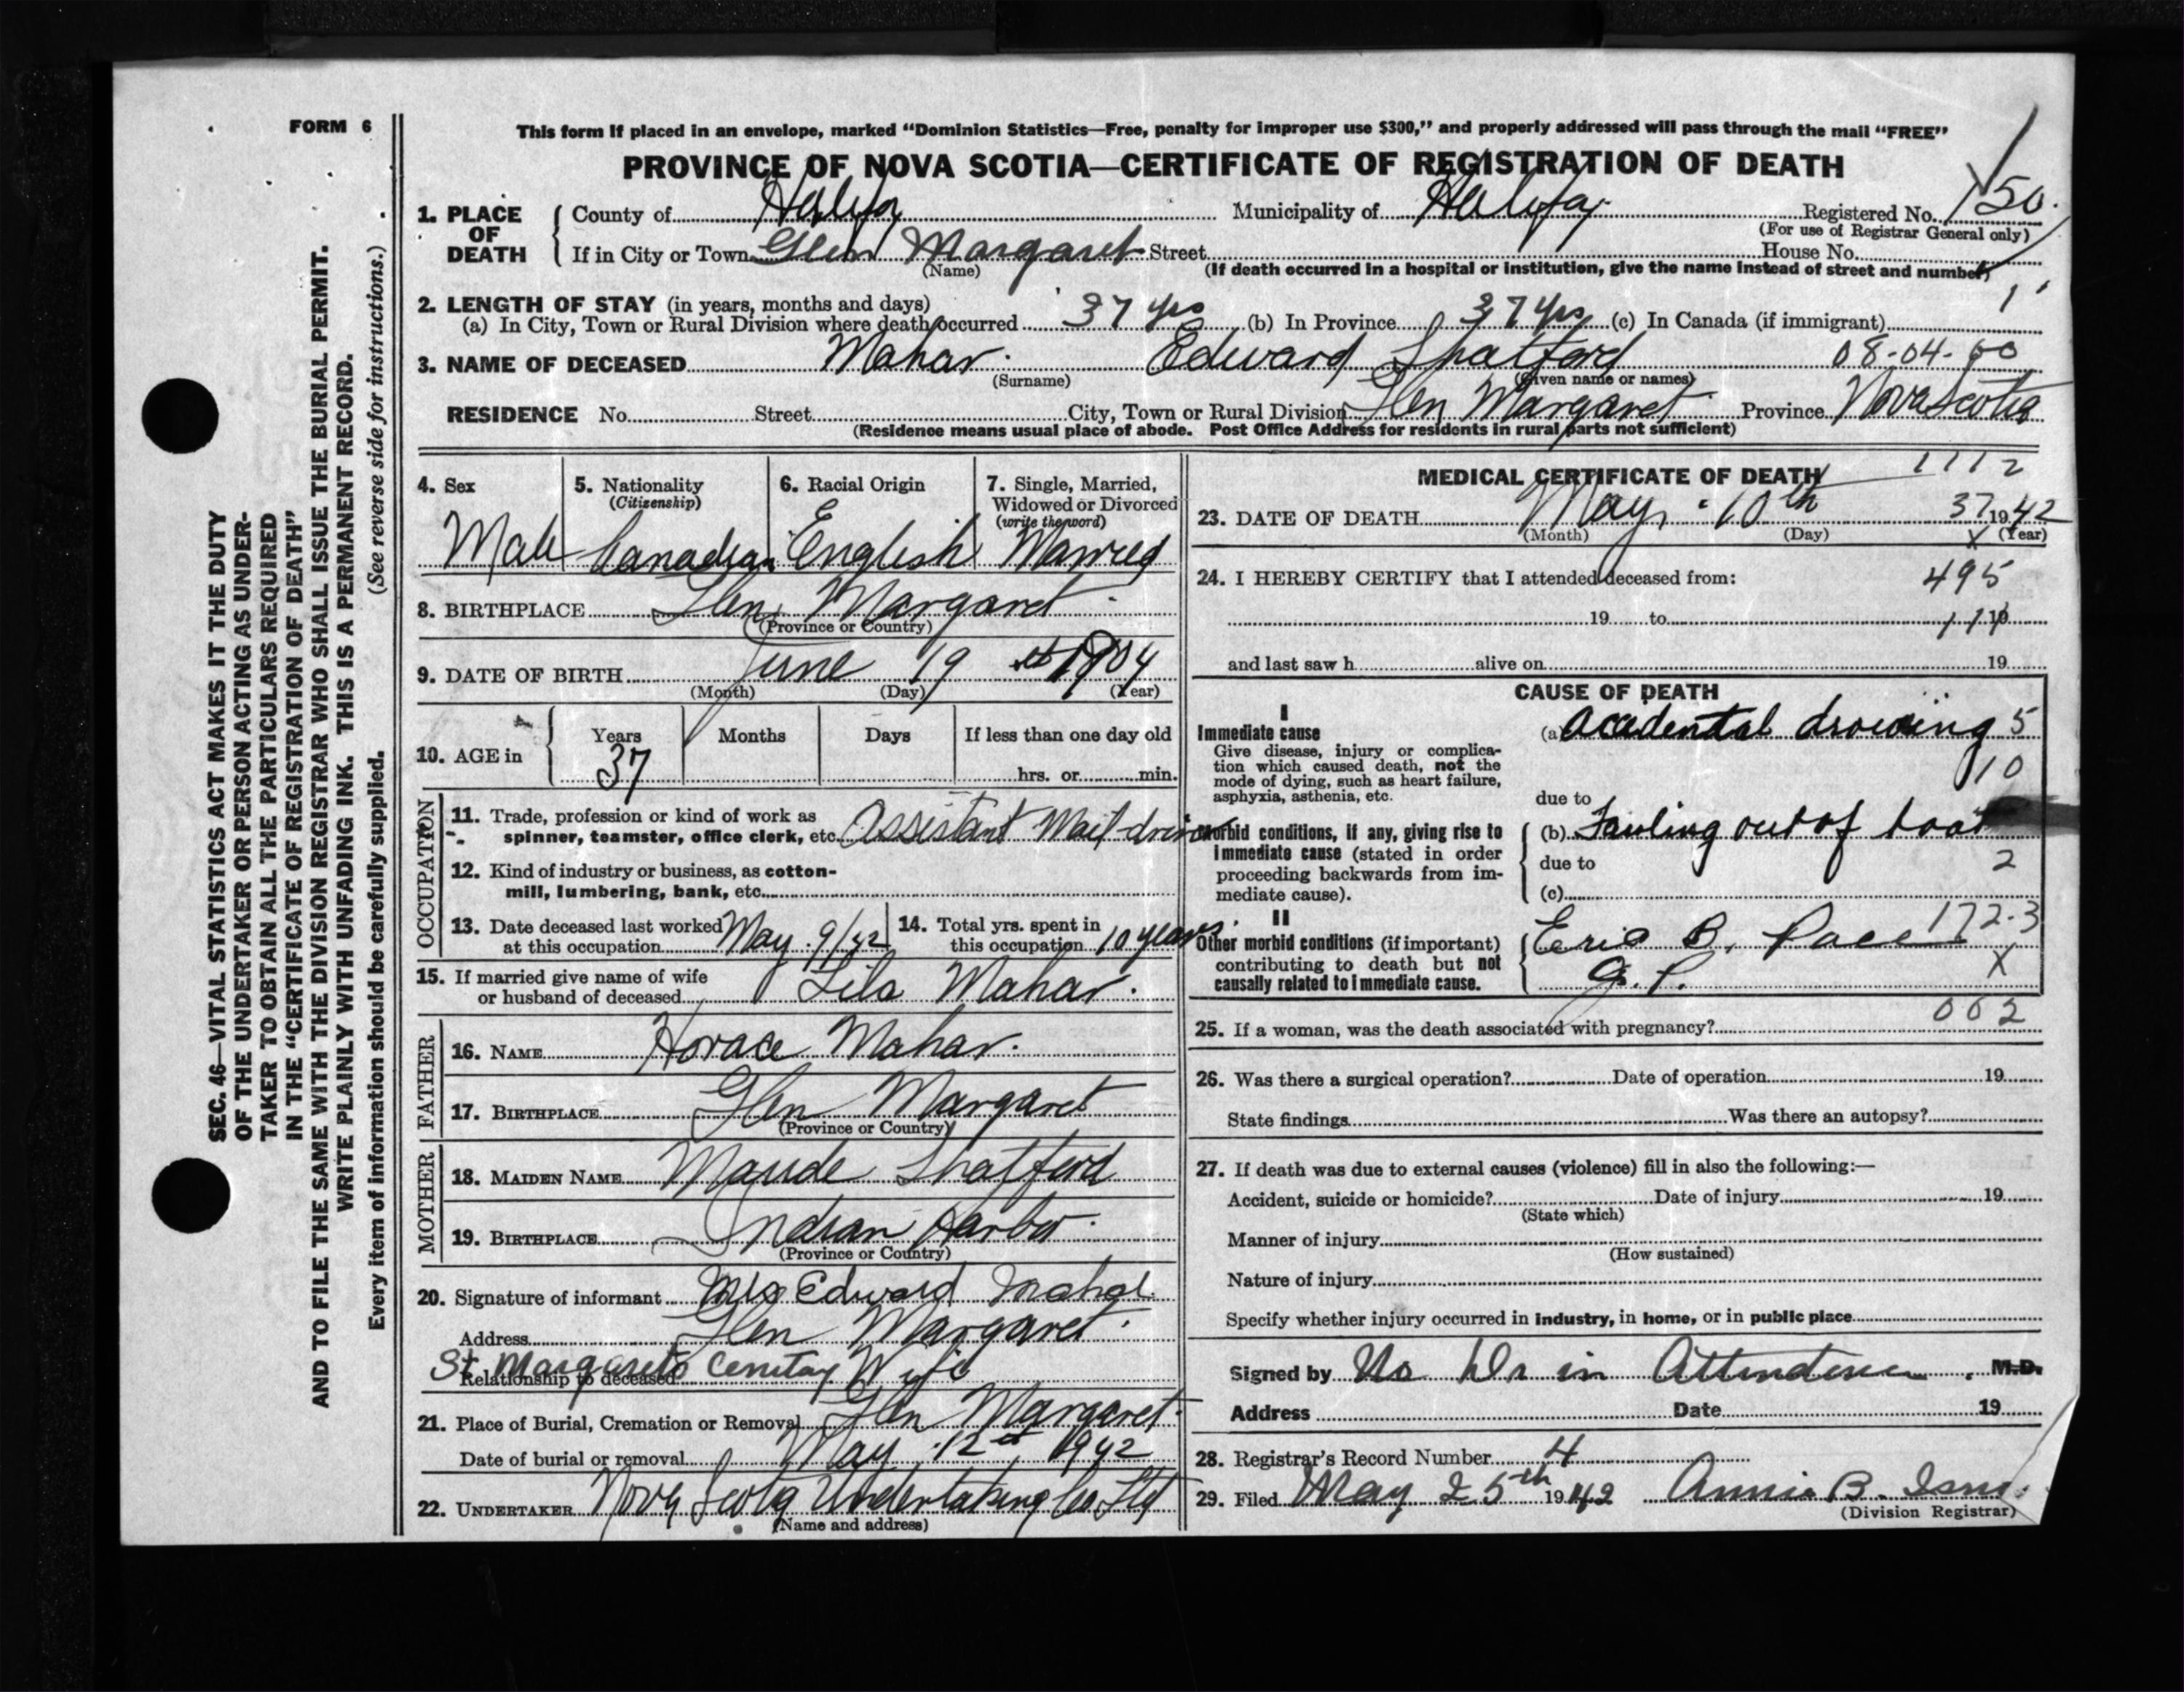 FORM 6
This form if placed in an envelope, marked “Dominion Statistics—Free, penalty for improper use $300,” and properly addressed will pass through the mail “FREE”
PROVINCE OF NOVA SCOTIA—CERTIFICATE OF REGISTRATION OF DEATH
1. PLACE OF DEATH County of Halifax Municipality of Halifax Registered No. 150
(For use of Registrar General only)
If in City or Town Glen Margaret Street House No.
(Name) (If death occurred in a hospital or institution, give the name instead of street and number)
2. LENGTH OF STAY (in years, months and days) 1
(a) In City, Town or Rural Division where death occurred 37 yrs (b) In Province 37 yrs (c) In Canada (if immigrant)
3. NAME OF DECEASED Mahar. Edward Shatford 08-04-60
(Surname) (Given name or names)
RESIDENCE No. Street City, Town or Rural Division Glen Margaret Province Nova Scotia
(Residence means usual place of abode. Post Office Address for residents in rural parts not sufficient)
4. Sex 5. Nationality 6. Racial Origin 7. Single, Married,
(Citizenship) Widowed or Divorced
(write the word)
Male Canadian English Married
8. BIRTHPLACE Glen Margaret
(Province or Country)
9. DATE OF BIRTH June 19 1904
(Month) (Day) (Year)
10. AGE in Years Months Days If less than one day old
37 hrs. or min.
OCCUPATION
11. Trade, profession or kind of work as
spinner, teamster, office clerk, etc. Assistant Mail driver
12. Kind of industry or business, as cotton-
mill, lumbering, bank, etc.
13. Date deceased last worked at this occupation May 9/42 14. Total yrs. spent in this occupation 10 years.
15. If married give name of wife
or husband of deceased Lila Mahar.
FATHER
16. NAME Horace Mahar.
17. BIRTHPLACE Glen Margaret
(Province or Country)
MOTHER
18. MAIDEN NAME Maude Shatford
19. BIRTHPLACE Indian Harbor.
(Province or Country)
20. Signature of informant Mrs Edward Mahar.
Address Glen Margaret.
St. Margarets Cemetary
Relationship to deceased Wife
21. Place of Burial, Cremation or Removal Glen Margaret.
Date of burial or removal May 12 1942
22. UNDERTAKER Nova Scotia Undertaking Co. Ltd
(Name and address)
MEDICAL CERTIFICATE OF DEATH 1112
23. DATE OF DEATH May 10th 37 1942
(Month) (Day) X (Year)
24. I HEREBY CERTIFY that I attended deceased from: 495
19 to 19
and last saw h alive on 19
CAUSE OF DEATH
I
Immediate cause (a) Accedental drowing 5
Give disease, injury or complica-
tion which caused death, not the 10
mode of dying, such as heart failure,
asphyxia, asthenia, etc. due to
Morbid conditions, if any, giving rise to (b) Fauling out of boat
immediate cause (stated in order due to 2
proceeding backwards from im-
mediate cause). (c)
II 172-3
Other morbid conditions (if important) Eric B. Pace
contributing to death but not X
causally related to immediate cause. J. P.
25. If a woman, was the death associated with pregnancy? 062
26. Was there a surgical operation? Date of operation 19
State findings Was there an autopsy?
27. If death was due to external causes (violence) fill in also the following:—
Accident, suicide or homicide? Date of injury 19
(State which)
Manner of injury
(How sustained)
Nature of injury
Specify whether injury occurred in industry, in home, or in public place
Signed by No Dr in Attendance. M.D.
Address Date 19
28. Registrar's Record Number 4
29. Filed May 25th 1942 Annie B.
(Division Registrar)
SEC. 46—VITAL STATISTICS ACT MAKES IT THE DUTY
OF THE UNDERTAKER OR PERSON ACTING AS UNDER-
TAKER TO OBTAIN ALL THE PARTICULARS REQUIRED
IN THE “CERTIFICATE OF REGISTRATION OF DEATH”
AND TO FILE THE SAME WITH THE DIVISION REGISTRAR WHO SHALL ISSUE THE BURIAL PERMIT.
WRITE PLAINLY WITH UNFADING INK. THIS IS A PERMANENT RECORD.
Every item of information should be carefully supplied. (See reverse side for instructions.)